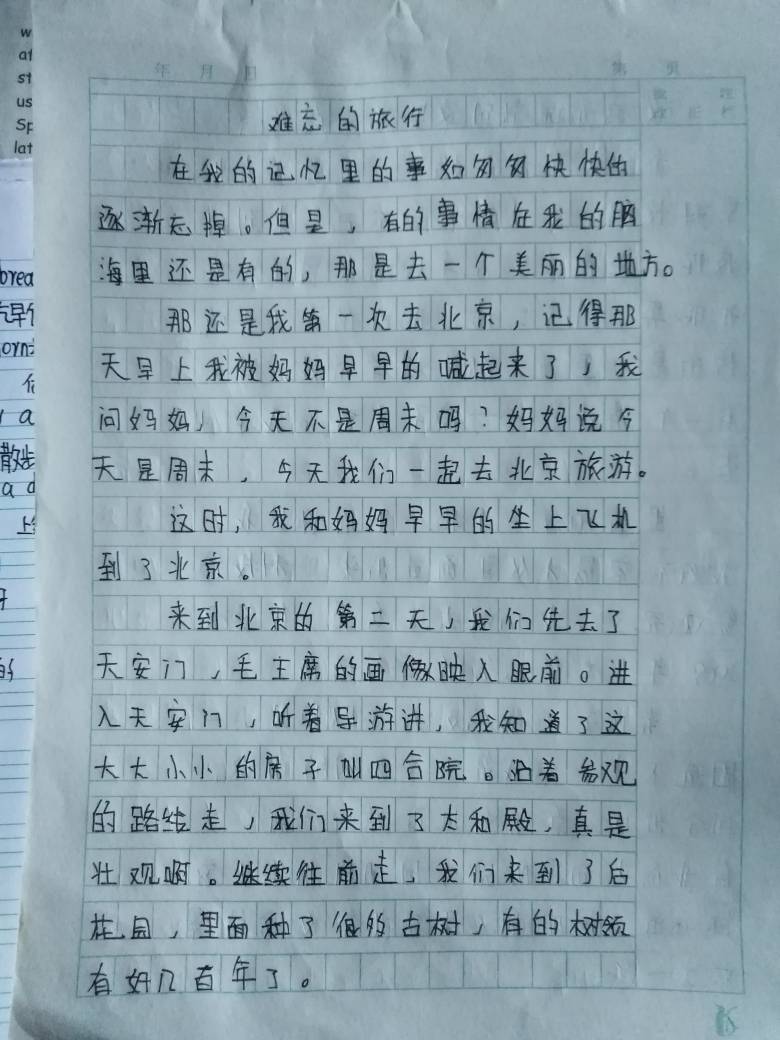 w
at
st
us
Sp
lat
brea
a
散步
年 月 日 第 页
难忘的旅行
在我的记忆里的事如匆匆快快的
逐渐忘掉。但是，有的事情在我的脑
海里还是有的，那是去一个美丽的地方。
那还是我第一次去北京，记得那
天早上我被妈妈早早的喊起来了，我
问妈妈，今天不是周末吗？妈妈说今
天是周末，今天我们一起去北京旅游。
这时，我和妈妈早早的坐上飞机
到了北京。
来到北京的第二天，我们先去了
天安门，毛主席的画像映入眼前。进
入天安门，听着导游讲，我知道了这
大大小小的房子叫四合院。沿着参观
的路线走，我们来到了太和殿，真是
壮观啊。继续往前走，我们来到了后
花园，里面种了很多古树，有的树龄
有好几百年了。